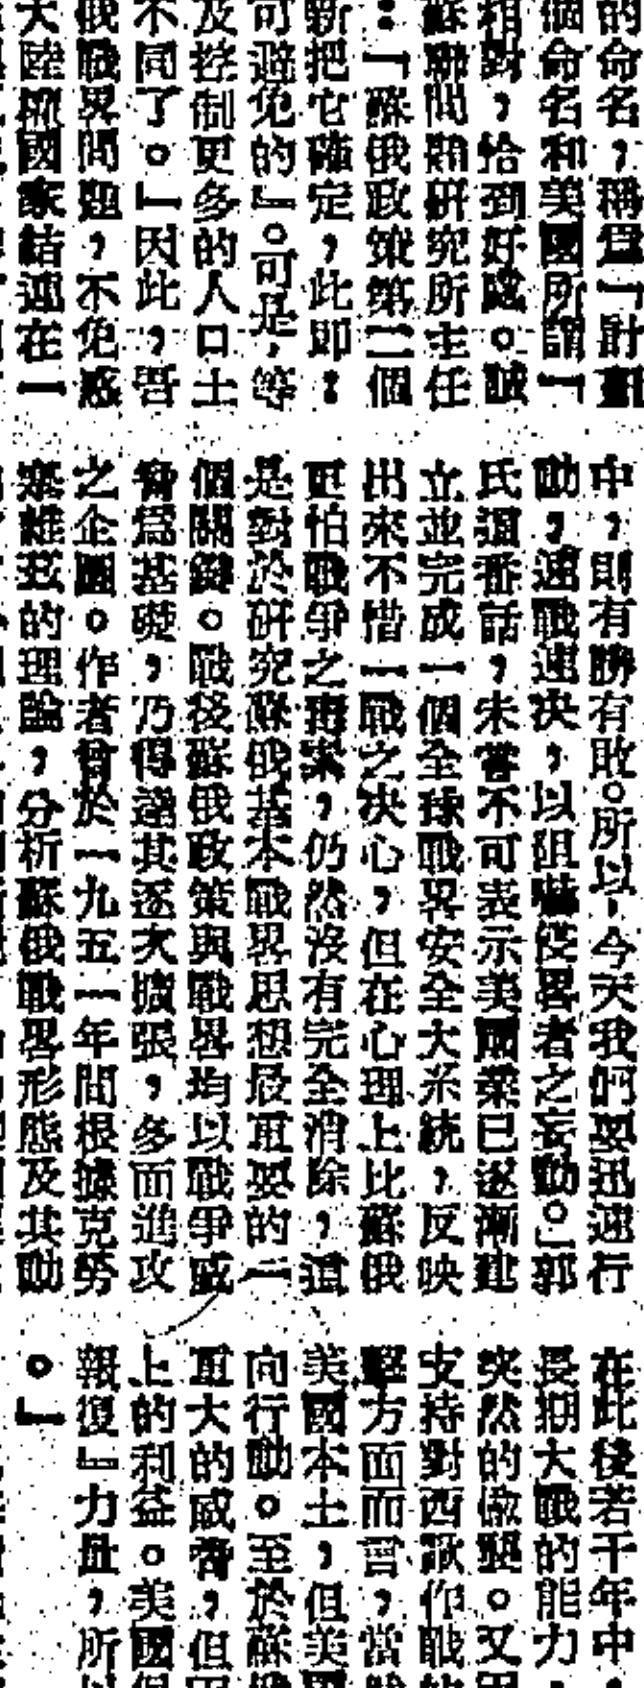 的命名，稱爲「計劃
個命名和美國所謂「
相對，恰到好處。誠
蘇聯問題研究所主任
：「蘇俄政策第二個
新把它確定，此即：
可避免的』。可是，等
及控制更多的人口土
不同了。」因此，吾
俄戰畧問題，不免惑
大陸橫國家結連在一
中，則有勝有敗。所以，今天我們要迅速行
動，速戰速決，以阻嚇侵畧者之妄動。」郭
氏這番話，未嘗不可表示美國業已逐漸建
立並完成一個全球戰畧安全大系統，反映
出來不惜一戰之決心，但在心理上比蘇俄
更怕戰爭之，仍然沒有完全消除，這
是對於研究蘇俄基本戰畧思想最重要的一
個關鍵。戰後蘇俄政策與戰畧均以戰爭威
脅爲基礎，乃得遂其逐次擴張，多面進攻
之企圖。作者曾於一九五一年間根據克勞
塞維茲的理論，分析蘇俄戰畧形態及其動
在此後若干年中，
長期大戰的能力，
突然的襲。又
支持對西歐作戰
擊方面而言，當
美國本土，但美
向行動。至於蘇
重大的威脅，但
上的利益。美國
報復』力量，所
。」